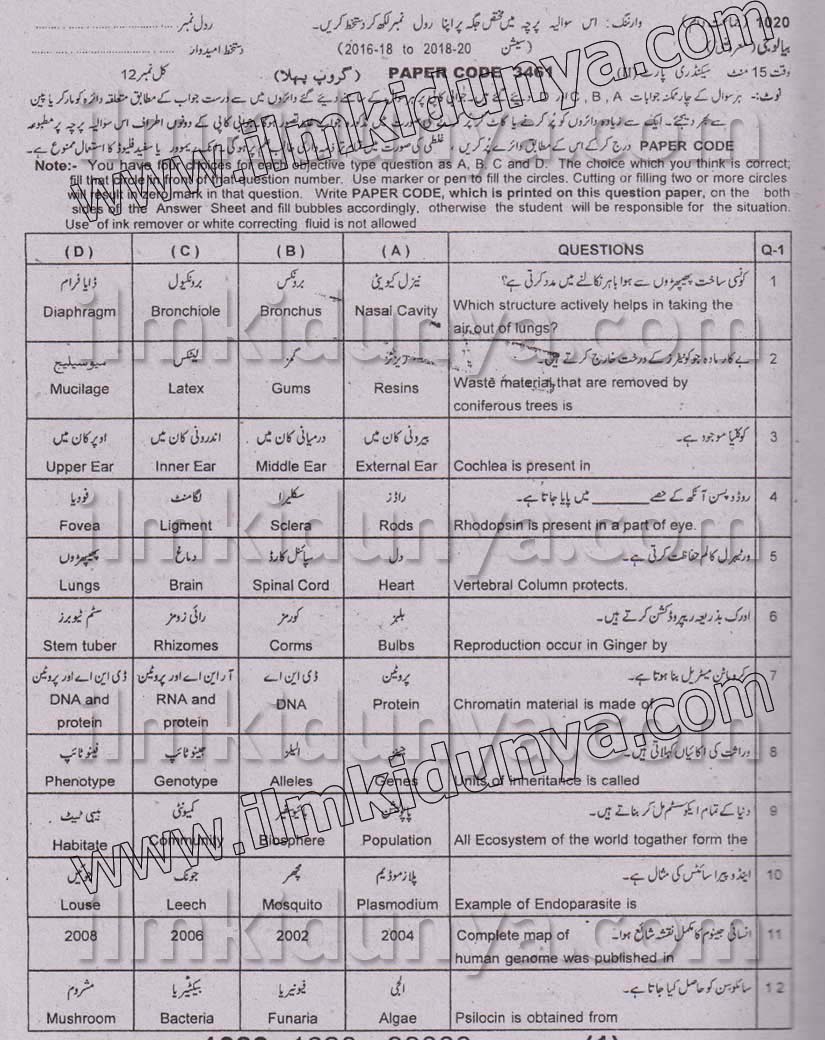 1020 وارننگ: اس سوالیہ پرچہ میں مختص جگہ پر اپنا رول نمبر لکھ کر دستخط کریں۔ رول نمبر
بیالوجی (سیشن 2016-18 to 2018-20) دستخط امیدوار
وقت 15 منٹ سیکنڈری PAPER CODE 3461 (گروپ پہلا) کل نمبر 12
نوٹ:- ہر سوال کے چار ممکنہ جوابات A , B , C
PAPER CODE درج کر کے اس کے مطابق دائرے پُر کریں،
Note:- You have four choices for each objective type question as A, B, C and D. The choice which you think is correct;
fill that circle in front of that question number. Use marker or pen to fill the circles. Cutting or filling two or more circles
will result in zero mark in that question. Write PAPER CODE, which is printed on this question paper, on the both
sides of the Answer Sheet and fill bubbles accordingly, otherwise the student will be responsible for the situation.
Use of ink remover or white correcting fluid is not allowed
( D ) ( C ) ( B ) ( A ) QUESTIONS Q-1
ڈایا فرام برونکیول برونکس نیزل کیویٹی کونسی ساخت پھیپھڑوں سے ہوا باہر نکالنے میں مدد کرتی ہے؟ 1
Diaphragm Bronchiole Bronchus Nasal Cavity Which structure actively helps in taking the
air out of lungs?
میوسیلیج لیٹکس گمز ریزنز بے کار مادہ جو کونیفرز کے درخت خارج کرتے ہیں۔ 2
Mucilage Latex Gums Resins Waste material that are removed by
coniferous trees is
اوپر کان میں اندرونی کان میں درمیانی کان میں بیرونی کان میں کوکلیا موجود ہے۔ 3
Upper Ear Inner Ear Middle Ear External Ear Cochlea is present in
فوویا لگامنٹ سکلیرا راڈز روڈوپسن آنکھ کے حصے ______ میں پایا جاتا ہے۔ 4
Fovea Ligment Sclera Rods Rhodopsin is present in a part of eye.
پھیپھڑوں دماغ سپائنل کارڈ دل ورٹیبرل کالم حفاظت کرتی ہے۔ 5
Lungs Brain Spinal Cord Heart Vertebral Column protects.
سٹم ٹیوبرز رائی زومز کورمز بلبز ادرک بذریعہ ریپروڈکشن کرتے ہیں۔ 6
Stem tuber Rhizomes Corms Bulbs Reproduction occur in Ginger by
ڈی این اے اور پروٹین آر این اے اور پروٹین ڈی این اے پروٹین کروماٹن میٹریل بنا ہوتا ہے۔ 7
DNA and protein RNA and protein DNA Protein Chromatin material is made of
فینوٹائپ جینوٹائپ الیلز جینز وراثت کی اکائیاں کہلاتی ہیں۔ 8
Phenotype Genotype Alleles Genes Units of inheritance is called
ہیبی ٹیٹ کمیونٹی بائیوسفیر پاپولیشن دنیا کے تمام ایکوسسٹم مل کر بناتے ہیں۔ 9
Habitate Community Biosphere Population All Ecosystem of the world togather form the
جوئیں جونک مچھر پلازموڈیم اینڈو پیراسائٹس کی مثال ہے۔ 10
Louse Leech Mosquito Plasmodium Example of Endoparasite is
2008 2006 2002 2004 Complete map of انسانی جینوم کا مکمل نقشہ شائع ہوا۔ 11
human genome was published in
مشروم بیکٹیریا فیونیریا الجی سائلوسن کو حاصل کیا جاتا ہے۔ 12
Mushroom Bacteria Funaria Algae Psilocin is obtained from
www.ilmkidunya.com
www.ilmkidunya.com
ilmkidunya.com
ilmkidunya.com
ilmkidunya.com
ilmkidunya.com
ilmkidunya.com